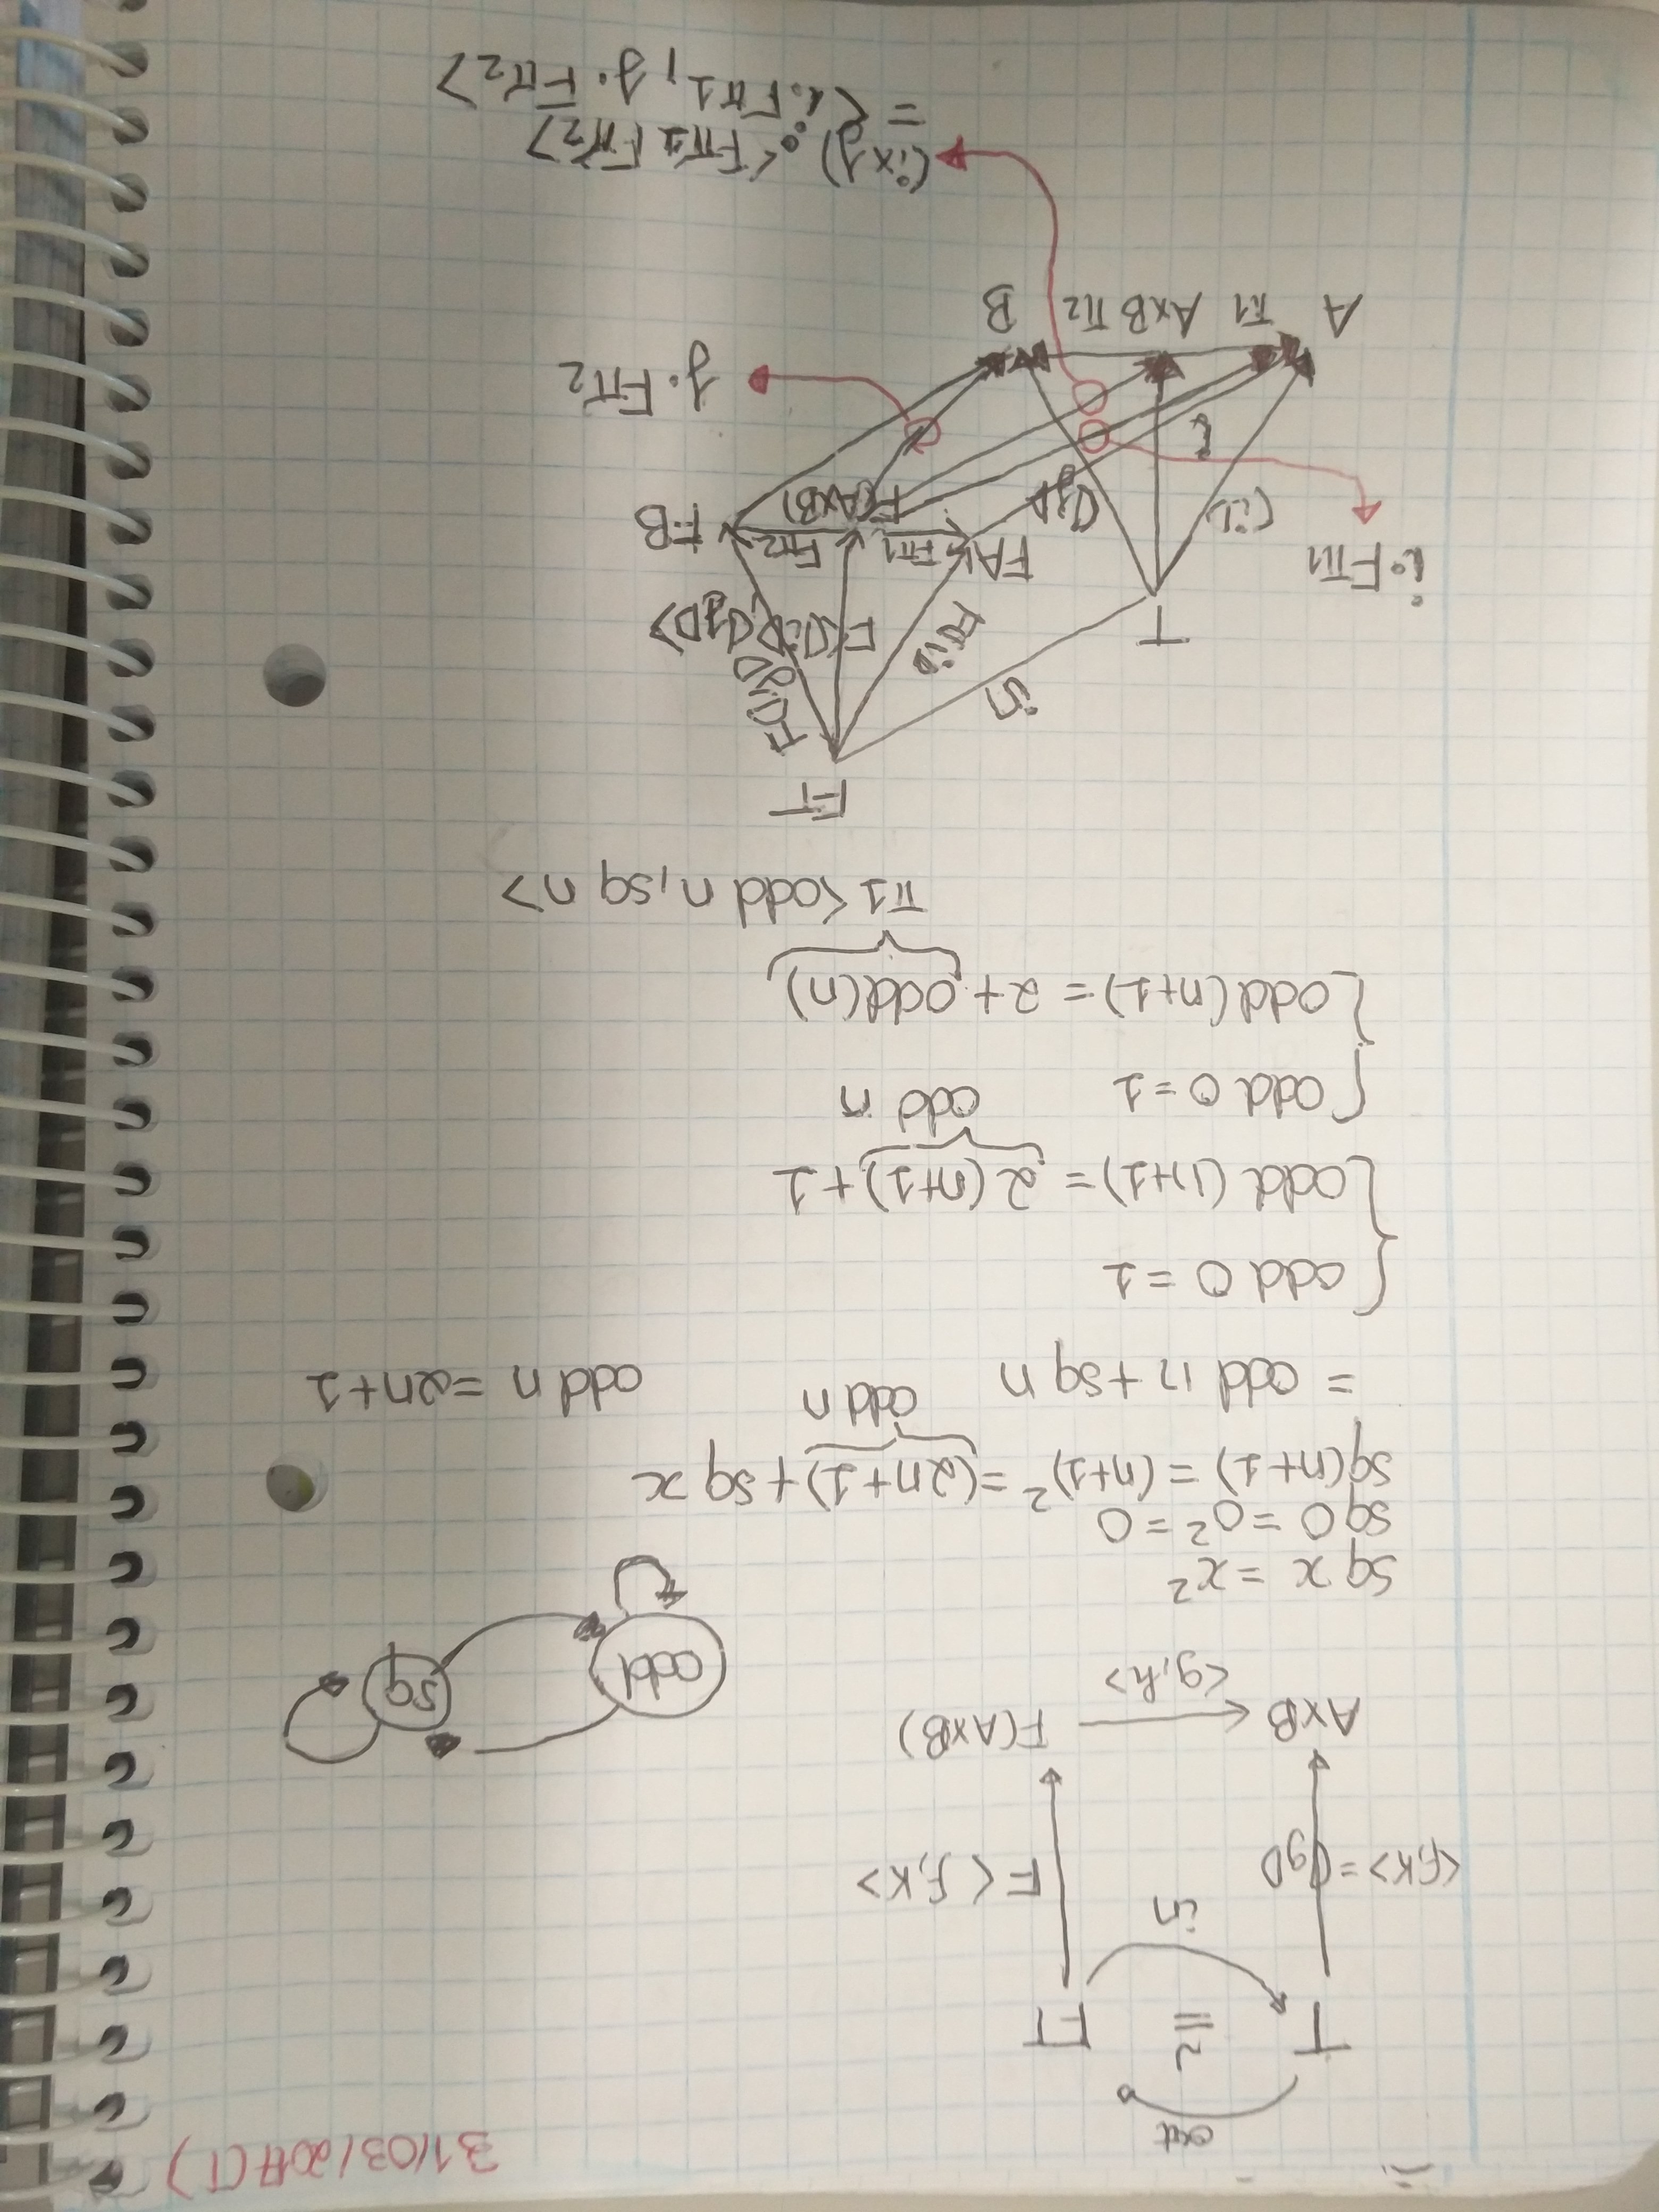 31/03/2017(T)
out
T ≅ FT
in
<f,K> = ⦇g⦈
F<f,K>
AxB
F(AxB)
<g,h>
odd
sq
sq x = x²
sq 0 = 0² = 0
sq(n+1) = (n+1)² = (2n+1) + sq x
odd n
= odd n + sq n
odd n = 2n+1
odd 0 = 1
odd (n+1) = 2(n+1) + 1
odd n
odd 0 = 1
odd(n+1) = 2 + odd(n)
π1 <odd n, sq n>
FT
in
F⦇i⦈
F<⦇i⦈ ⦇j⦈>
F⦇j⦈
T
i·Fπ1
FA
Fπ1
Fπ2
FB
F(AxB)
⦇i⦈
⦇j⦈
j·Fπ2
A π1 AxB π2 B
(ixj) · <Fπ1 Fπ2>
= <i·Fπ1, j·Fπ2>